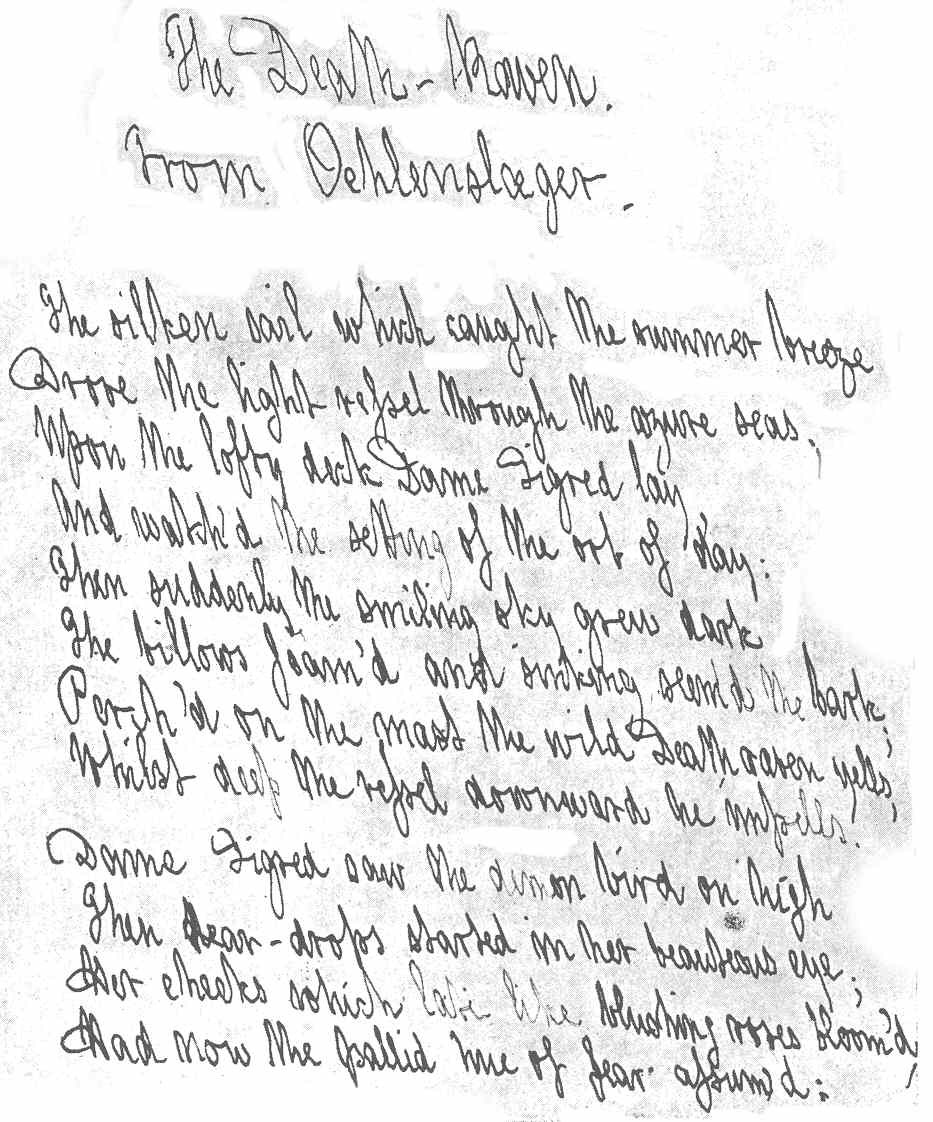 The Death-Raven.
From Oehlenslæger.
The silken sail which caught the summer breeze
Drove the light vessel through the azure seas.
Upon the lofty deck Dame Sigred lay
And watch'd the setting of the orb of day:
Then suddenly the smiling sky grew dark
The billows foam'd and sinking seem'd the bark;
Perch'd on the mast the wild Death raven yells,
Whilst deep the vessel downward he impells.
Dame Sigred saw the demon bird on high
Then tear-drops started in her beauteous eye;
Her cheeks which late like blushing roses bloom'd,
Had now the pallid hue of fear assum'd: